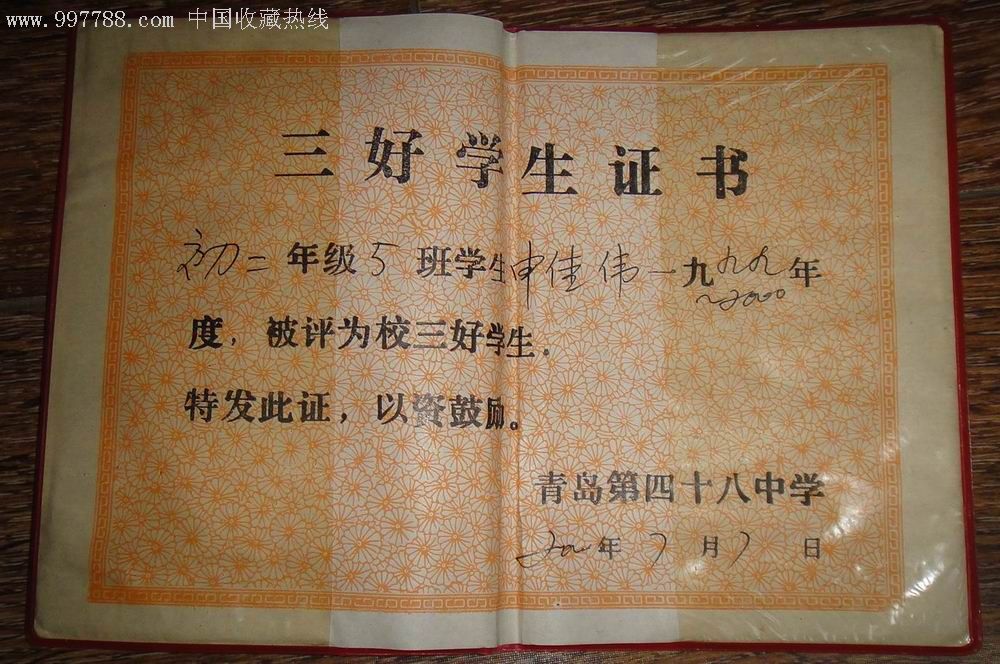 www.997788.com 中国收藏热线
三好学生证书
初二年级5班学生申佳伟一九九九年
~2000
度，被评为校三好学生.
特发此证，以资鼓励。
青岛第四十八中学
年7月7日